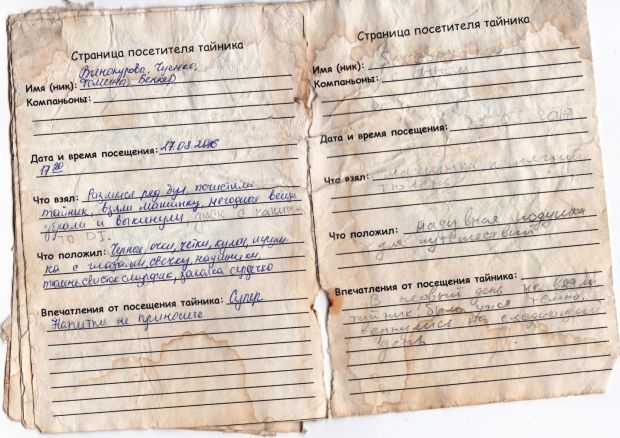 Страница посетителя тайника
Имя (ник): Винокурова, Чуенко,
Фоменко, Беккер
Компаньоны:
Дата и время посещения: 17.08.2016
17 20
Что взял: ред бул, почистили
тайник, взяли машинку, негодное вещи
убрали и выкинули, диск с каким-
то DJ.
Что положил: Чернов, очки, чётки, кулон,
ка с глазами, свечку, наушники,
смурфик, закалка сердечко
Впечатления от посещения тайника: Супер
Напитки не приносите
Страница посетителя тайника
Имя (ник):
Компаньоны:
Дата и время посещения:
Что взял:
тюлень
Что положил: Надувная подушка
для путешествий
Впечатления от посещения тайника:
В первый день не взяли
тайник, было уже темно,
вернулись на следующий
день